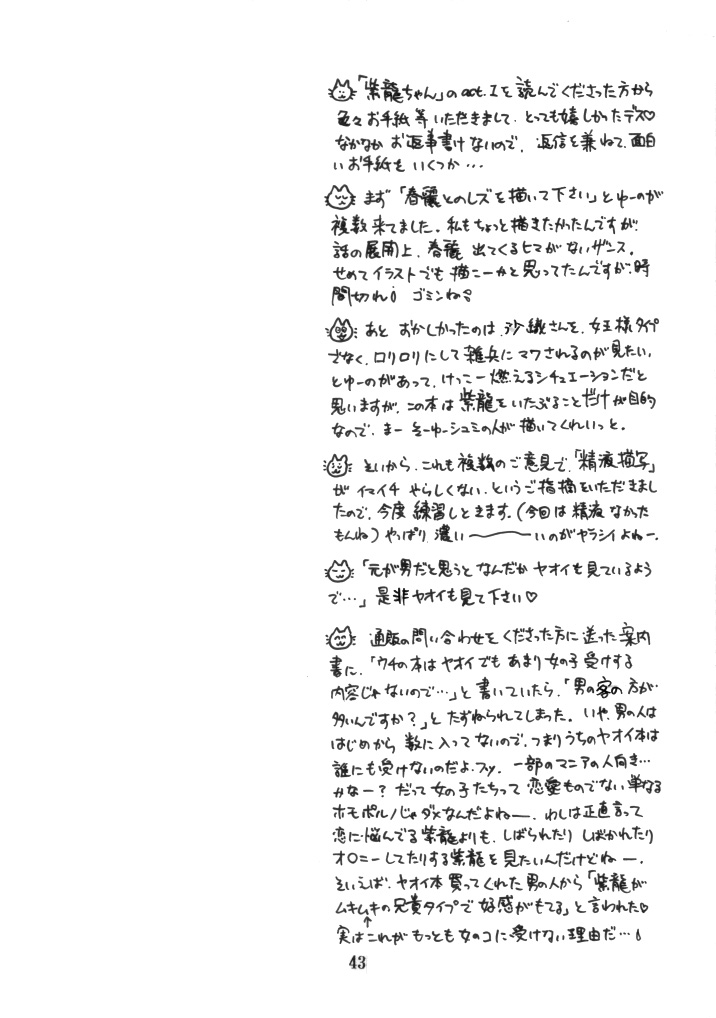 「紫龍ちゃん」のact.Iを読んでくださった方から
色々お手紙等いただきまして、とっても嬉しかったデス♡
なかなかお返事書けないので、返信を兼ねて、面白
いお手紙をいくつか…
まず「春麗とのレズを描いて下さい」とゆーのが
複数来てました。私もちょっと描きたかったんですが、
話の展開上、春麗出てくるヒマがないザンス。
せめてイラストでも描こーかと思ってたんですが、時
間切れ! ゴミンね
あとおかしかったのは、沙織さんを、女王様タイプ
でなく、ロリロリにして雑兵にマワされるのが見たい、
とゆーのがあって、けっこー燃えるシチュエーションだと
思いますが、この本は紫龍をいたぶることだけが目的
なので、まーそーゆーシュミの人が描いてくれいっと。
そいから、これも複数のご意見で、「精液描写」
がイマイチやらしくない、というご指摘をいただきまし
たので、今度練習しときます。(今回は精液なかった
もんね)やっぱり濃い〜〜〜いのがヤラシイよねー。
「元が男だと思うとなんだかヤオイも見ているよう
で…」是非ヤオイも見て下さい♡
通販の問い合わせをくださった方に送った案内
書に、「ウチの本はヤオイでもあまり女の子受けする
内容じゃないので…」と書いていたら、「男の客の方が
多いんですか?」とたずねられてしまった。いや、男の人は
はじめから数に入ってないので、つまりうちのヤオイ本は
誰にも受けないのだよ、フッ。一部のマニアの人向き…
かなー?だって女の子たちって恋愛ものでない単なる
ホモポルノじゃダメなんだよねー。わしは正直言って
恋に悩んでる紫龍よりも、しばられたりしばかれたり
オ○ニーしてたりする紫龍を見たいんだけどねー。
そいえば、ヤオイ本買ってくれた男の人から「紫龍が
ムキムキの兄貴タイプで好感がもてる」と言われた♡
↑
実はこれがもっとも女のコに受けない理由だ…!
43